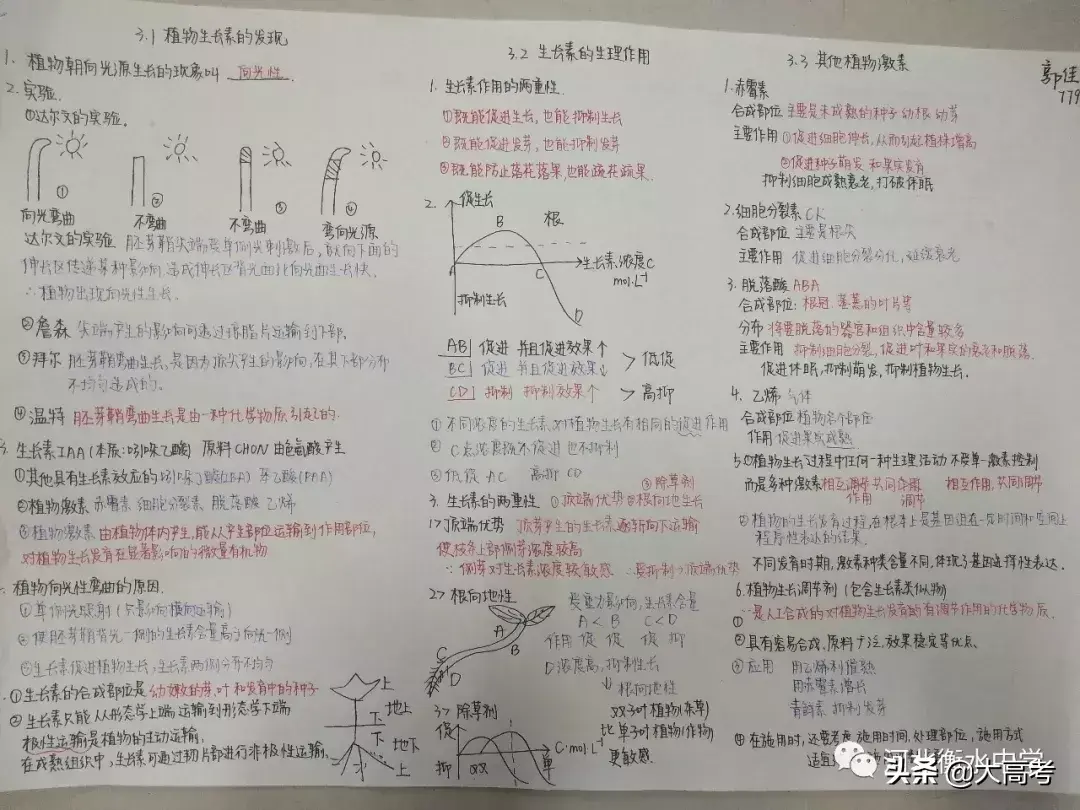 3.1 植物生长素的发现
1. 植物朝向光源生长的现象叫 向光性.
2. 实验.
①达尔文的实验.
① ② ③ ④
向光弯曲 不弯曲 不弯曲 弯向光源
达尔文的实验 胚芽鞘尖端受单侧光刺激后,就向下面的
伸长区传递某种影响,造成伸长区背光面比向光面生长快.
∴植物出现向光性生长.
②詹森 尖端产生的影响可透过琼脂片运输到下部.
③拜尔 胚芽鞘弯曲生长,是因为尖产生的影响,在其下部分布
不均匀造成的.
④温特 胚芽鞘弯曲生长是由一种化学物质引起的.
3. 生长素IAA(本质:吲哚乙酸) 原料CHON 由色氨酸产生
①其他具有生长素效应的:吲哚丁酸(IBA) 苯乙酸(PAA)
②植物激素 赤霉素 细胞分裂素 脱落酸 乙烯
③植物激素 由植物体内产生,能从产生部位运输到作用部位,
对植物生长发育有显著影响的微量有机物
植物向光性弯曲的原因.
①单侧光照射(只影响横向运输)
②使胚芽鞘背光一侧的生长素含量高于向光一侧
③生长素促进植物生长,生长素两侧分布不均匀
①生长素的合成部位是 幼嫩的芽、叶和发育中的种子
②生长素只能从形态学上端运输到形态学下端
极性运输是植物的主动运输.
在成熟组织中,生长素可通过韧皮部进行非极性运输.
上
下 地上
下 地下
上
3.2 生长素的生理作用
1. 生长素作用的两重性.
①既能促进生长,也能抑制生长
②既能促进发芽,也能抑制发芽
③既能防止落花落果,也能疏花疏果.
2. 促生长
B 根
A C 生长素浓度C
mol·L⁻¹
抑制生长
D
AB 促进 并且促进效果↑
BC 促进 并且促进效果↓ > 低促
CD 抑制 抑制效果↑ > 高抑
①不同浓度的生长素,对植物生长有相同的促进作用
② C点浓度既不促进也不抑制
③低促 AC 高抑 CD
③除草剂
3. 生长素的两重性 ①顶端优势 ②根向地生长
1>顶端优势 顶芽产生的生长素逐渐向下运输
使枝条上部侧芽浓度较高
∵侧芽对生长素浓度较敏感 ∴受抑制→顶端优势
2>根向地性 受重力影响,生长素含量
A<B C<D
作用 促 促 促 抑
D浓度高,抑制生长
↓
根向地性
A B C D
3>除草剂 双子叶植物(杂草)
促 比单子叶植物(作物)
C·mol·L⁻¹ 更敏感.
抑 双 单
3.3 其他植物激素
郭佳
779
1.赤霉素
合成部位 主要是未成熟的种子 幼根 幼芽
主要作用 ①促进细胞伸长,从而引起植株增高
②促进种子萌发和果实发育
抑制细胞成熟衰老,打破休眠
2.细胞分裂素 CK
合成部位 主要是根尖
主要作用 促进细胞分裂分化,延缓衰老
3. 脱落酸 ABA
合成部位: 根冠.萎蔫的叶片等
分布 将要脱落的器官和组织中含量较多
主要作用 抑制细胞分裂,促进叶和果实的衰老和脱落.
促进休眠,抑制萌发,抑制植物生长.
4. 乙烯 气体
合成部位 植物各个部位
作用 促进果实成熟
5.①植物生长过程中任何一种生理活动 不受单一激素控制
而是多种激素相互调节共同作用 相互作用,共同调节
作用 调节
②植物的生长发育过程,在根本上是基因组在一定时间和空间上
程序性表达的结果.
不同发育时期,激素种类含量不同,体现了基因选择性表达.
6.植物生长调节剂(包含生长素类似物)
①是人工合成的对植物生长发育的有调节作用的化学物质.
②具有容易合成、原料广泛、效果稳定等优点.
③应用 用乙烯利催熟
用赤霉素增长
青鲜素 抑制发芽
④在施用时,还要考虑 施用时间、处理部位、施用方式
河北衡水中学
头条 @大高考